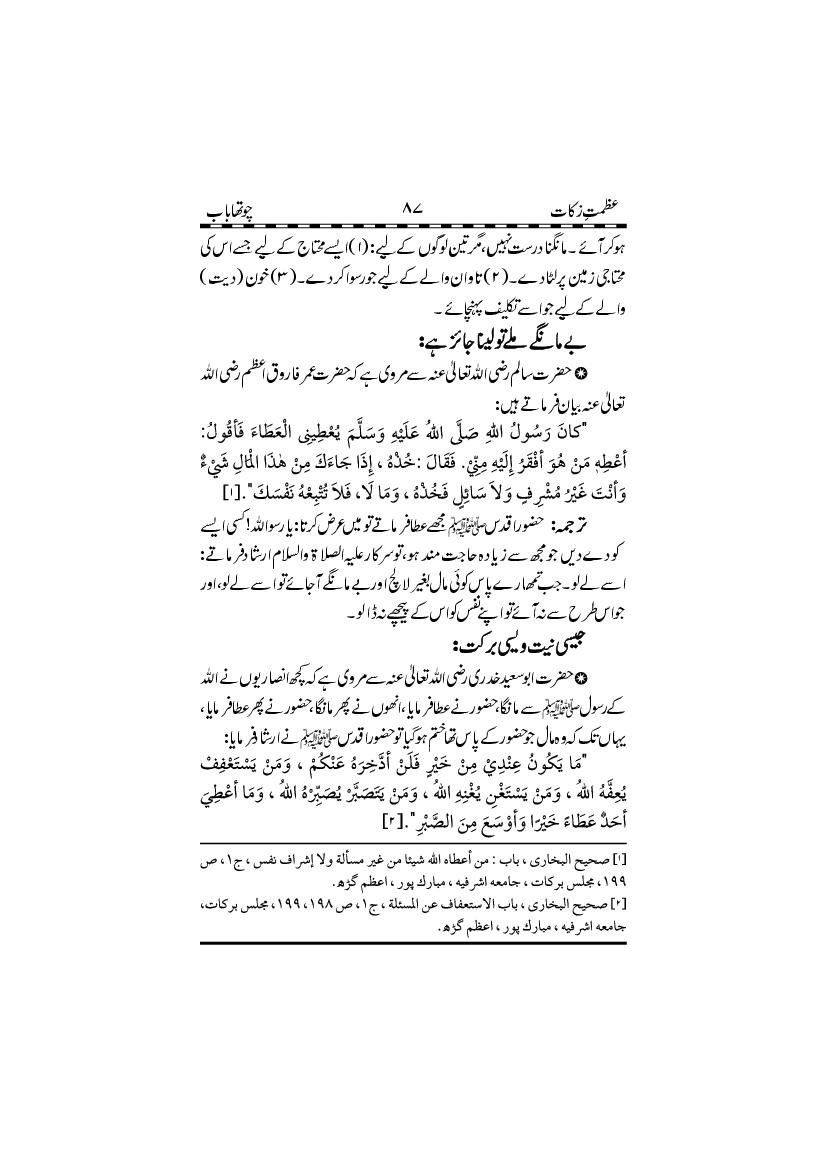 عظمتِ زکات ۸۷ چوتھا باب
ہو کر آئے ۔ مانگنا درست نہیں، مگر تین لوگوں کے لیے: (۱) ایسے محتاج کے لیے جسے اس کی
محتاجی زمین پر لٹا دے۔ (۲) تاوان والے کے لیے جو رسوا کر دے۔ (۳) خون (دیت)
والے کے لیے جو اسے تکلیف پہنچائے ۔
بے مانگے ملے تو لینا جائز ہے:
✪ حضرت سالم رضی اللہ تعالیٰ عنہ سے مروی ہے کہ حضرت عمر فاروق اعظم رضی اللہ
تعالیٰ عنہ بیان فرماتے ہیں:
"كَانَ رَسُولُ اللهِ صَلَّى اللهُ عَلَيْهِ وَسَلَّمَ يُعْطِينِى الْعَطَاءَ فَأَقُولُ:
أَعْطِهِ مَنْ هُوَ أَفْقَرُ إِلَيْهِ مِنِّيْ. فَقَالَ :خُذْهُ ، إِذَا جَاءَكَ مِنْ هٰذَا الْمَالِ شَيْءٌ
وَأَنْتَ غَيْرُ مُشْرِفٍ وَلاَ سَائِلٍ فَخُذْهُ ، وَمَا لَا، فَلاَ تُتْبِعْهُ نَفْسَكَ".[۱]
ترجمہ: حضور اقدس ﷺ مجھے عطا فرماتے تو میں عرض کرتا: یا رسو اللہ! کسی ایسے
کو دے دیں جو مجھ سے زیادہ حاجت مند ہو، تو سرکار علیہ الصلاۃ والسلام ارشاد فرماتے:
اسے لے لو۔ جب تمھارے پاس کوئی مال بغیر لالچ اور بے مانگے آجائے تو اسے لے لو، اور
جو اس طرح سے نہ آئے تو اپنے نفس کو اس کے پیچھے نہ ڈالو۔
جیسی نیت ویسی برکت:
✪ حضرت ابو سعید خدری رضی اللہ تعالیٰ عنہ سے مروی ہے کہ کچھ انصاریوں نے اللہ
کے رسول ﷺ سے مانگا، حضور نے عطا فرمایا، انھوں نے پھر مانگا، حضور نے پھر عطا فرمایا،
یہاں تک کہ وہ مال جو حضور کے پاس تھا ختم ہو گیا تو حضور اقدس ﷺ نے ارشا فرمایا:
"مَا يَكُونُ عِنْدِيْ مِنْ خَيْرٍ فَلَنْ أَدَّخِرَهُ عَنْكُمْ ، وَمَنْ يَسْتَعْفِفْ
يُعِفَّهُ اللهُ ، وَمَنْ يَسْتَغْنِ يُغْنِهِ اللهُ ، وَمَنْ يَتَصَبَّرْ يُصَبِّرْهُ اللهُ ، وَمَا أُعْطِيَ
أَحَدٌ عَطَاءً خَيْرًا وَأَوْسَعَ مِنَ الصَّبْرِ".[۲]
[۱] صحیح البخاری ، باب : من أعطاه الله شيئا من غير مسألة ولا إشراف نفس ، ج۱، ص
۱۹۹، مجلس برکات ، جامعه اشرفیه ، مبارك پور ، اعظم گڑھ.
[۲] صحیح البخاری ، باب الاستعفاف عن المسئلة ، ج۱، ص ۱۹۸، ۱۹۹، مجلس برکات،
جامعه اشرفیه ، مبارك پور ، اعظم گڑھ.